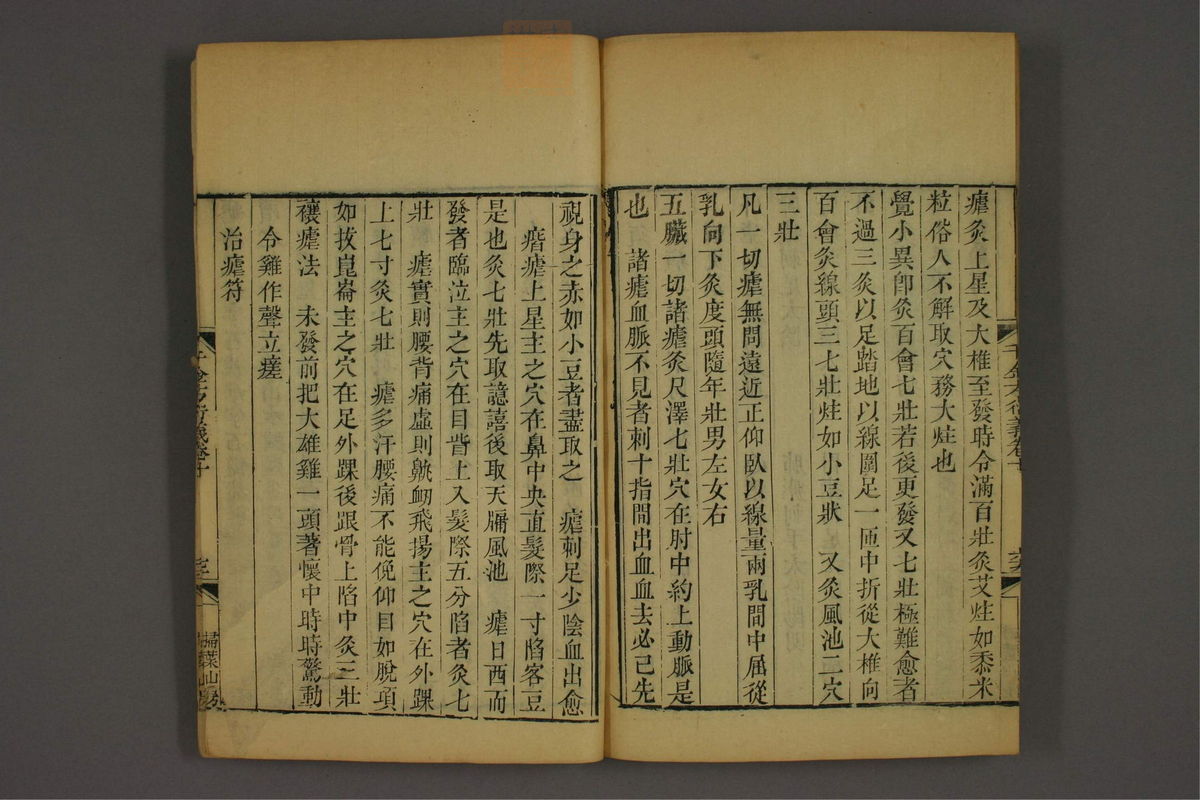 瘧灸上星及大椎至發時令滿百壯灸艾炷如黍米
粒俗人不解取穴務大炷也
覺小異卽灸百會七壯若後更發又七壯極難愈者
不過三灸以足踏地以線圍足一匝中折從大椎向
百會灸線頭三七壯炷如小豆狀　又灸風池二穴
三壯
凡一切瘧無問遠近正仰臥以線量兩乳間中屈從
乳向下灸度頭隨年壯男左女右
五臟一切諸瘧灸尺澤七壯穴在肘中約上動脈是
也　諸瘧血脈不見者刺十指間出血血去必已先
視身之赤如小豆者盡取之　瘧刺足少陰血出愈
㾬瘧上星主之穴在鼻中央直髮際一寸陷容豆
是也灸七壯先取譩譆後取天牖風池　瘧日西而
發者臨泣主之穴在目眥上入髮際五分陷者灸七
壯　瘧實則腰背痛虛則鼽衄飛揚主之穴在外踝
上七寸灸七壯　瘧多汗腰痛不能俛仰目如脫項
如拔崑崙主之穴在足外踝後跟骨上陷中灸三壯
禳瘧法　未發前把大雄雞一頭著懷中時時驚動
令雞作聲立瘥
治瘧符
千金方衍義卷十
掃葉山房